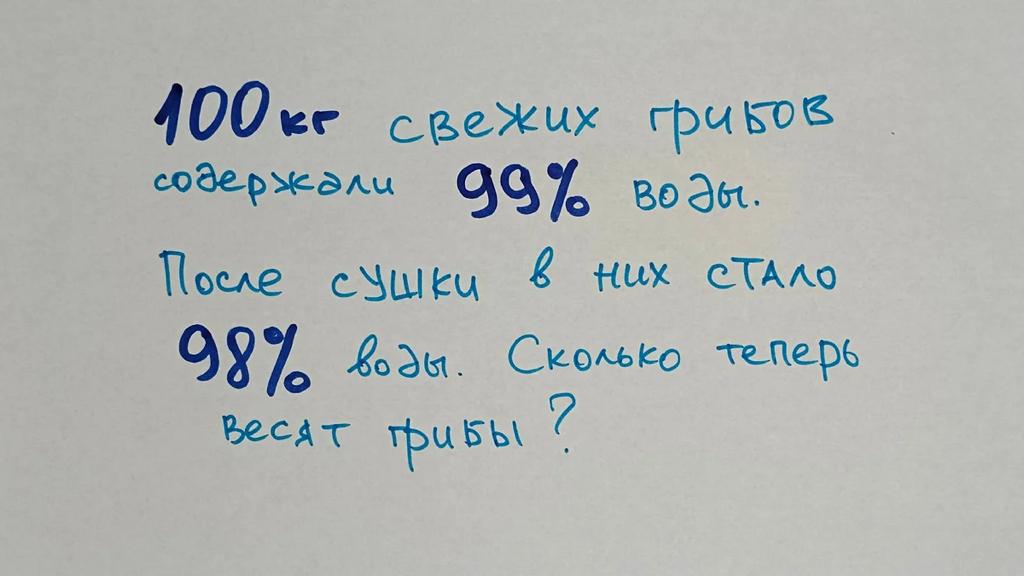 100кг свежих грибов
содержали 99% воды.
После сушки в них стало
98% воды. Сколько теперь
весят грибы?